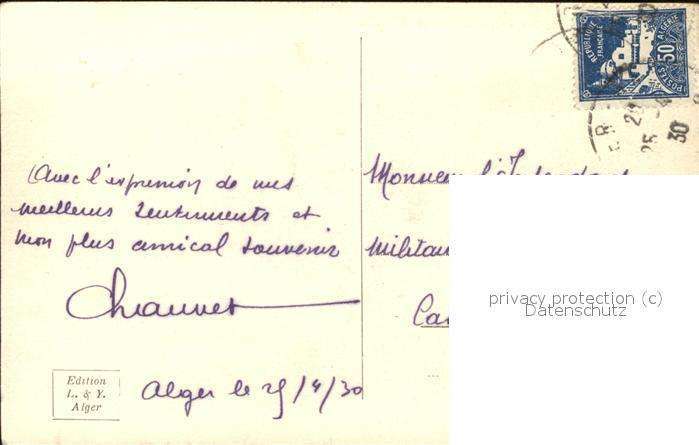 RÉPUBLIQUE
FRANÇAISE
POSTES 50 ALGERIE
25
30
Avec l'expression de mes
meilleurs sentiments et
mon plus amical souvenir
Chauvet
Monsieur l'Intendant
Militaire
privacy protection (c)
Datenschutz
Edition
L. & Y.
Alger
Alger le 25/4/30